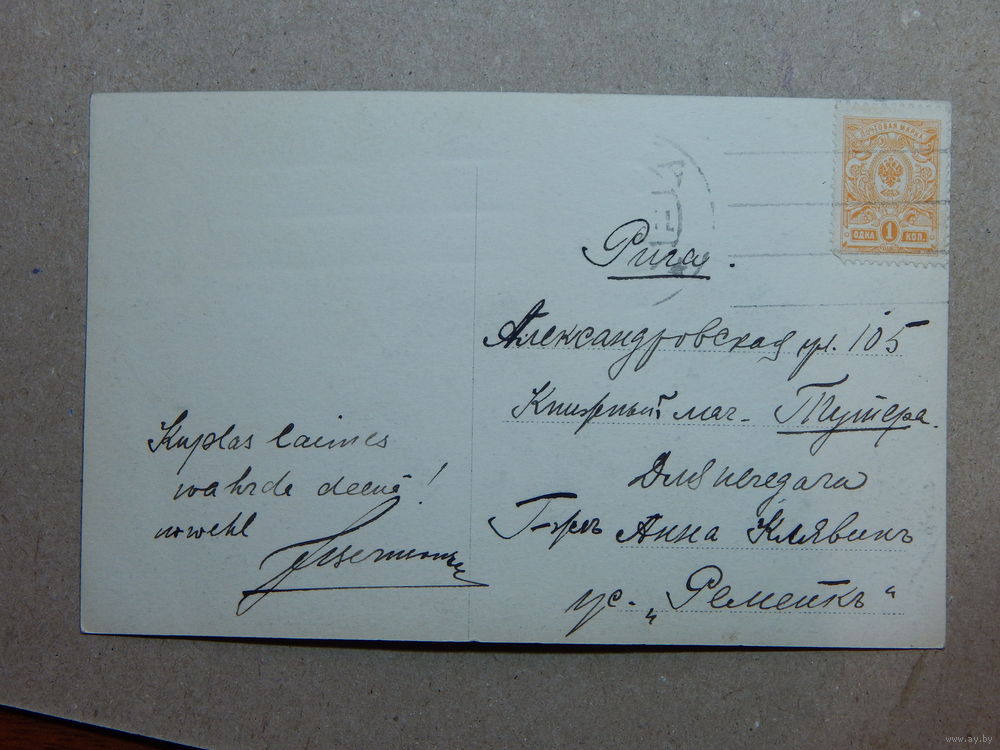 ПОЧТОВАЯ МАРКА
ОДНА 1 КОП.
Рига.
Александровская ул. 105
Книжный маг. Тутера.
Для передача
Г-жѣ Анна Клявинъ
ус. „Ремейкъ“
Kuplas laimes
wahrda deenā!
nowehl
www.ay.by